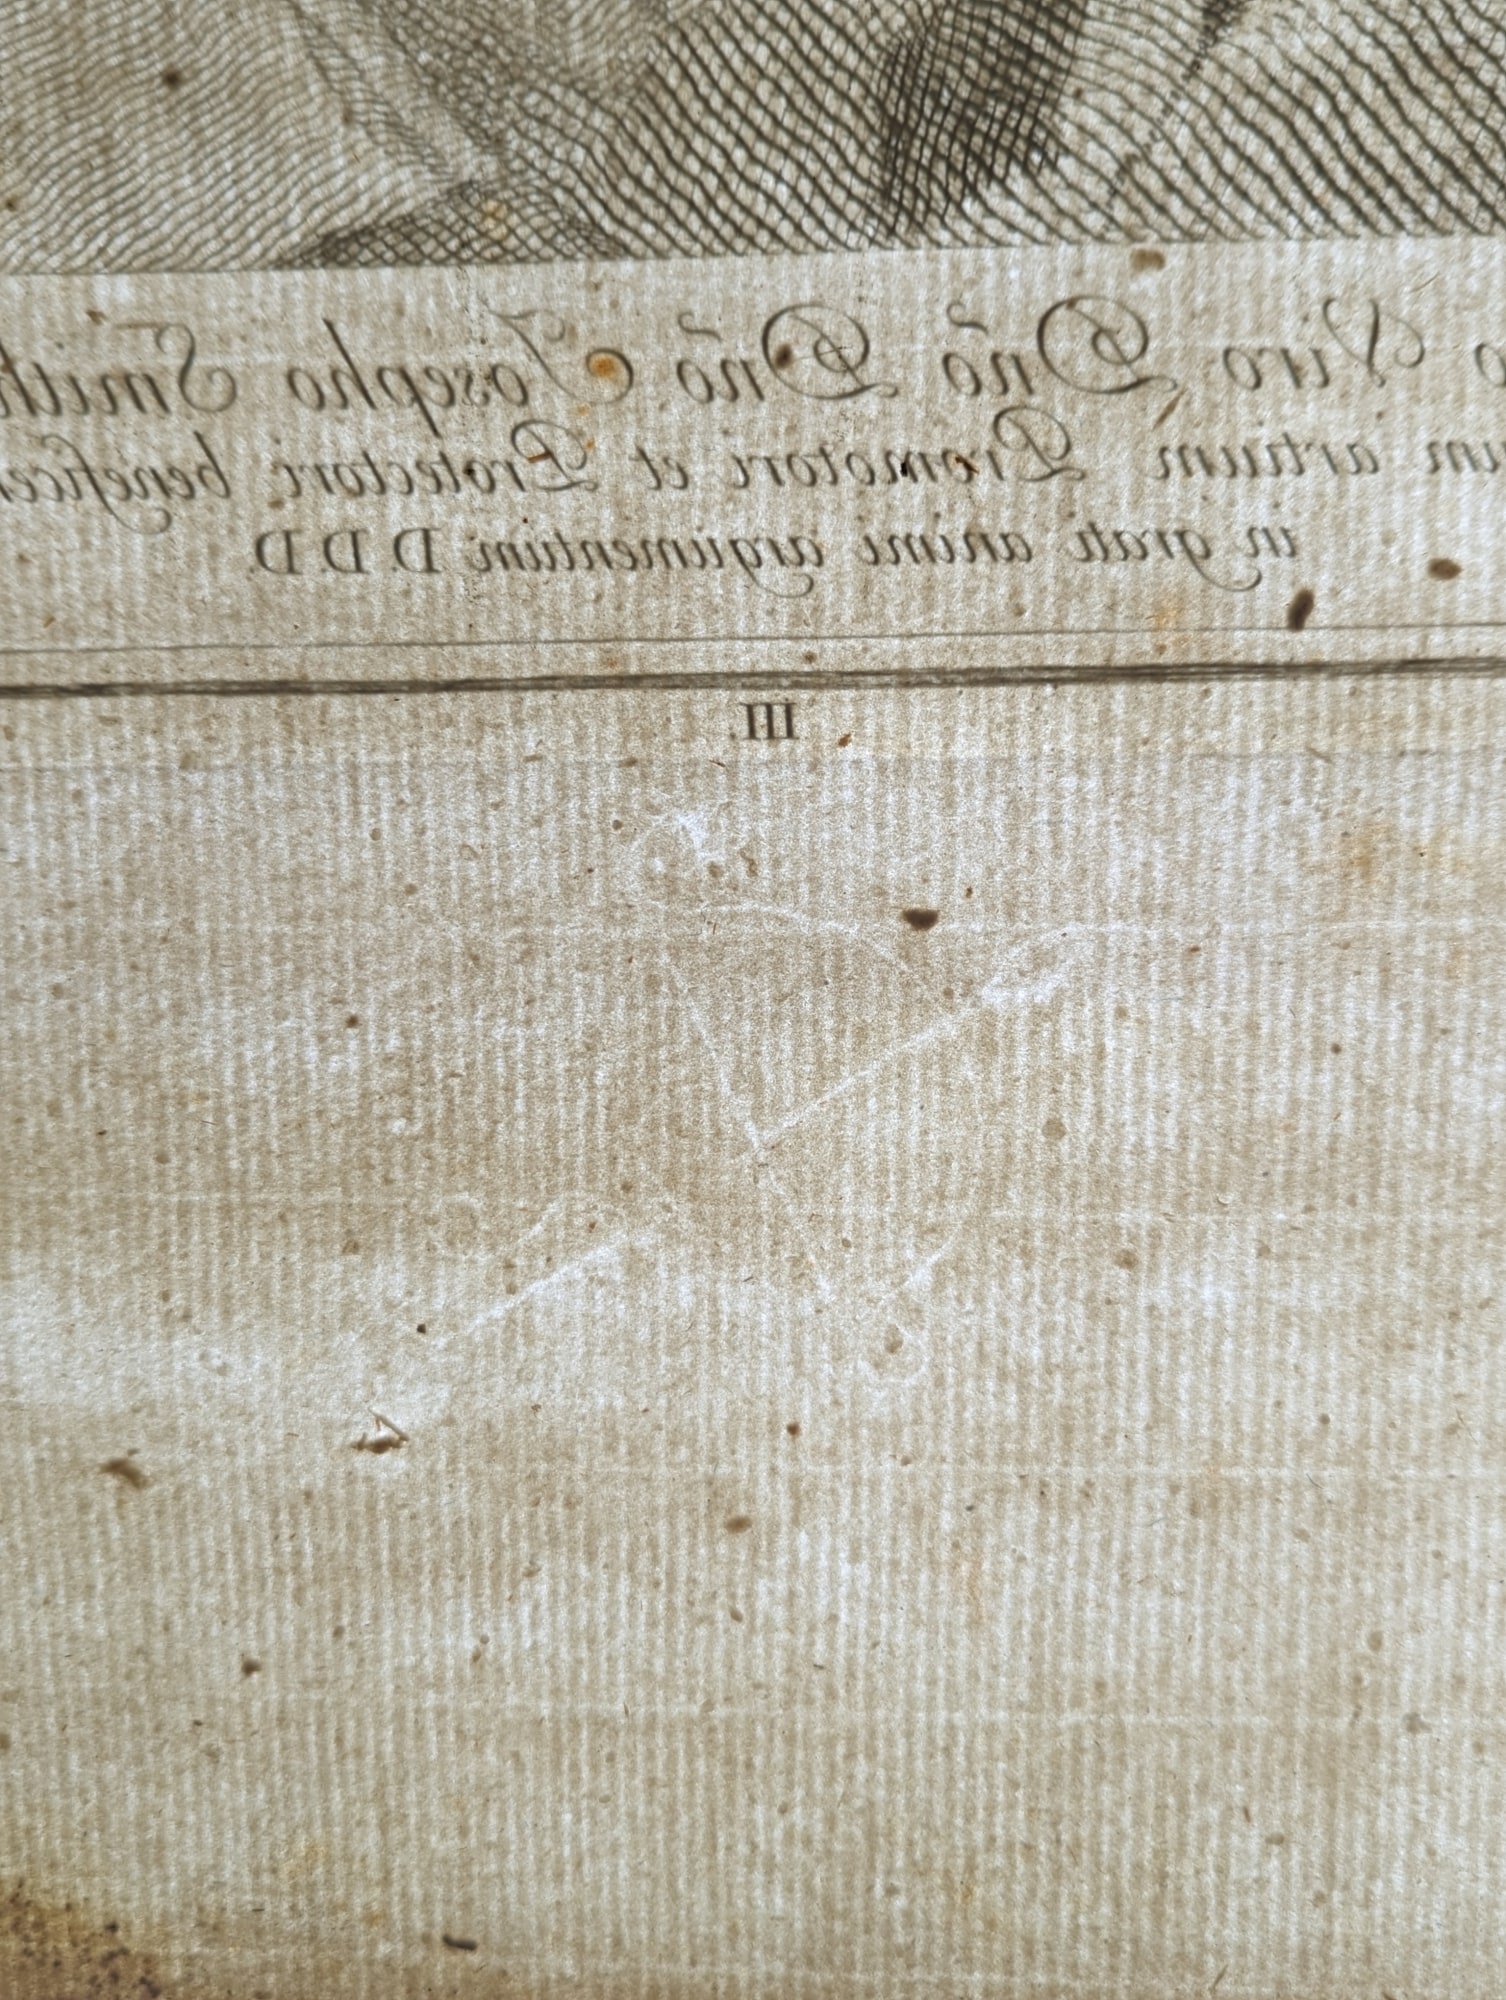 o Viro Dño Dño Josepho Smith
um artium Promotori et Protectori benefice
in grati animi argumentum D. D. D.
III.